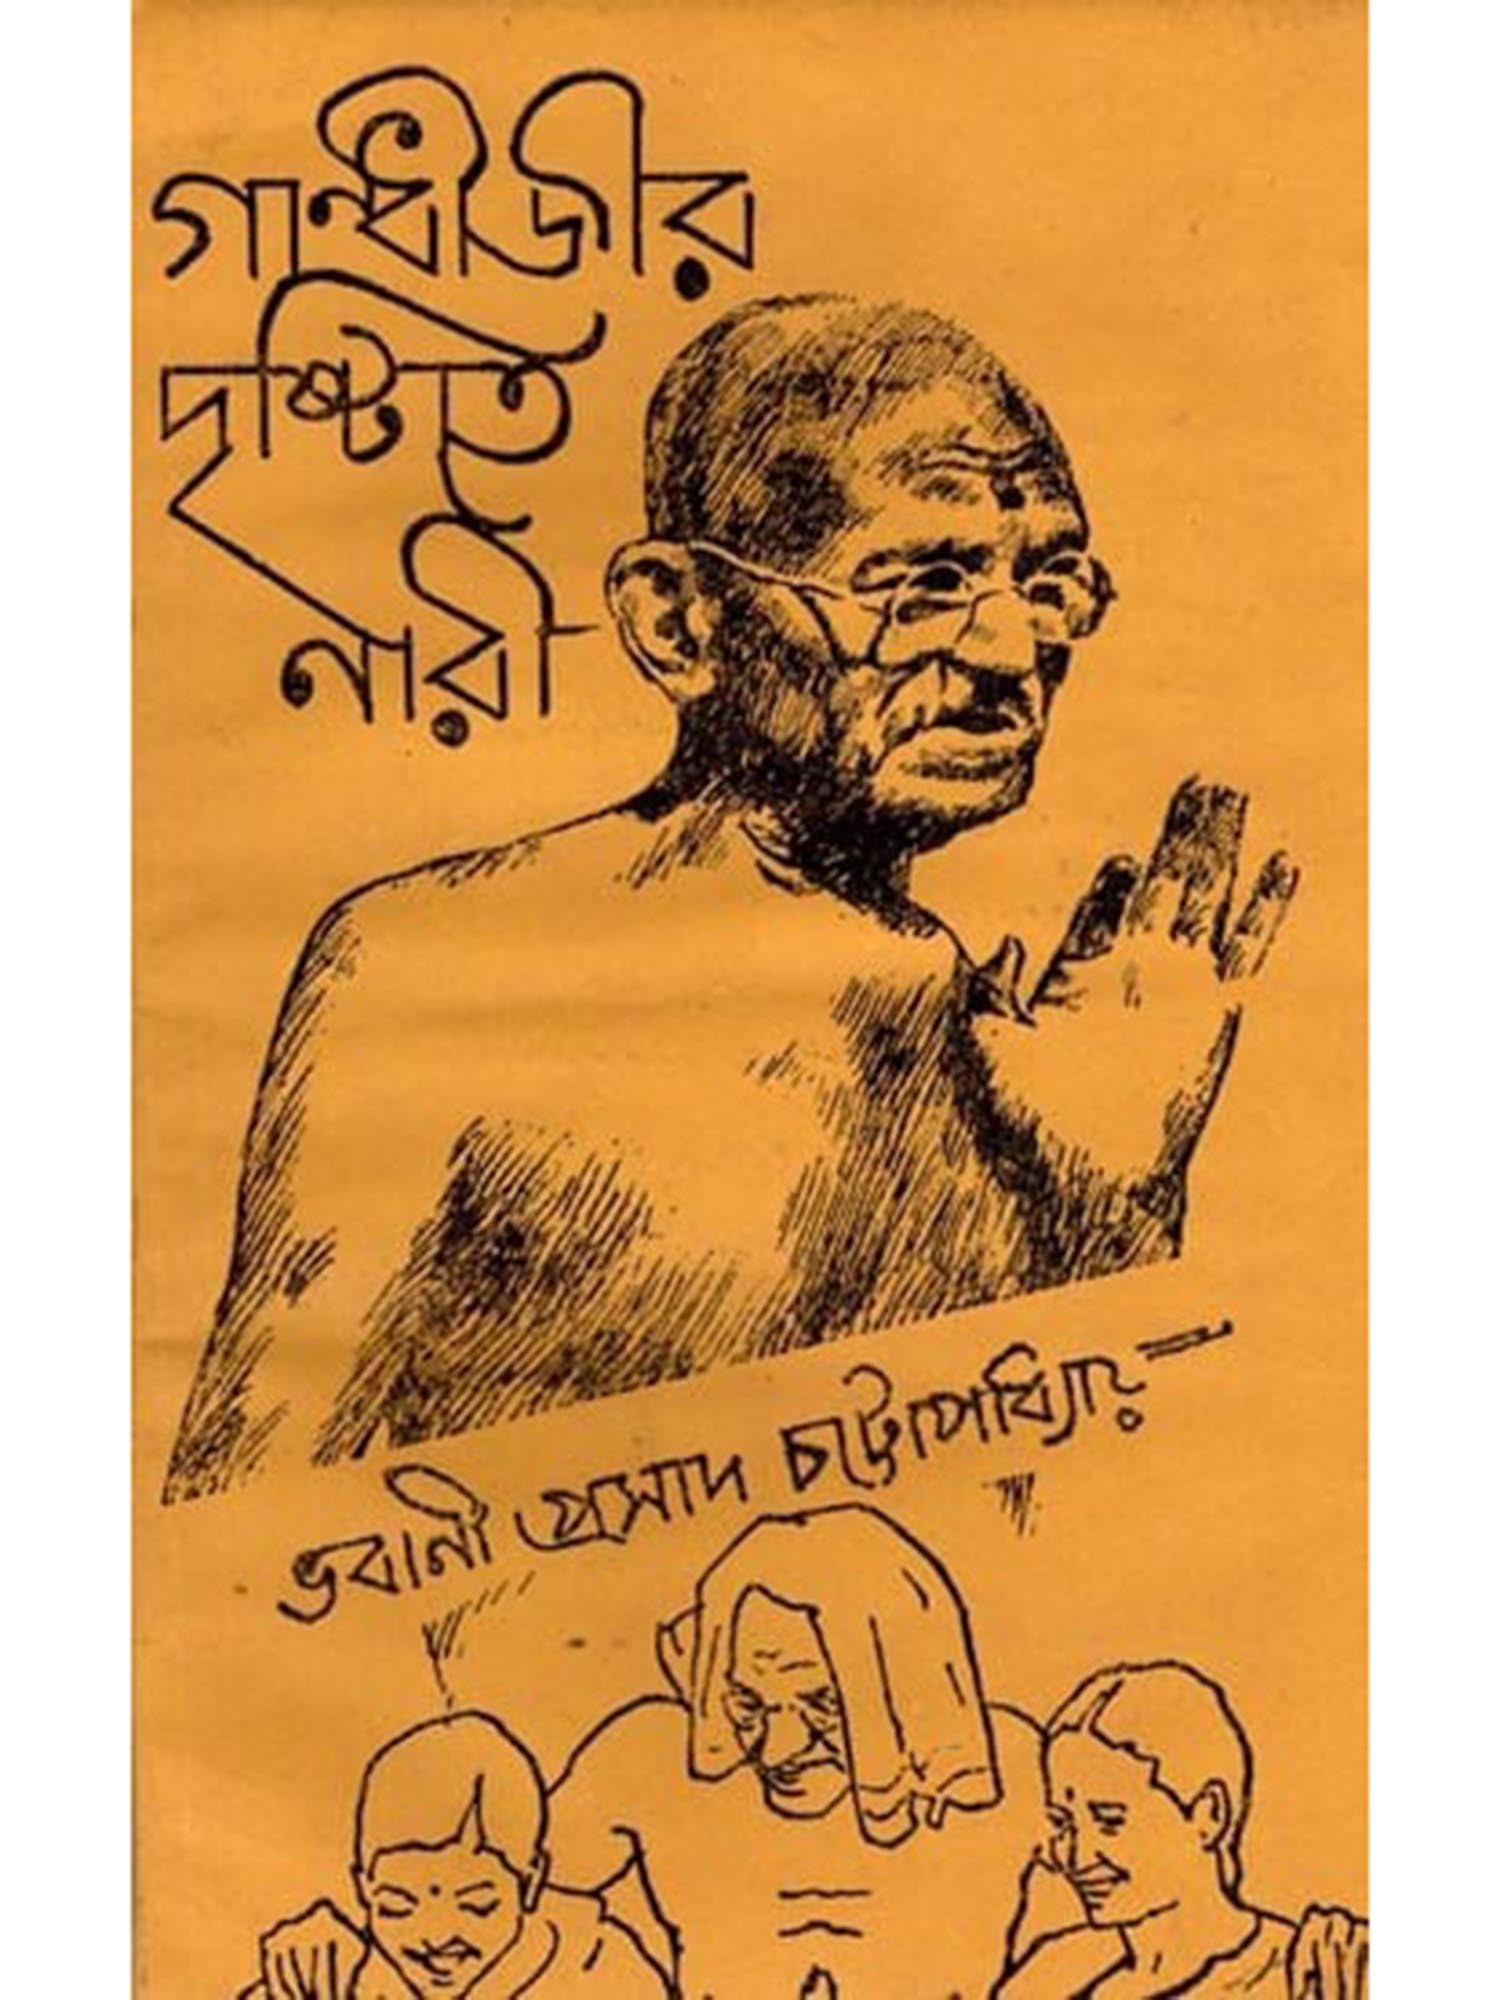 গান্ধীজীর
দৃষ্টিতে
নারী
ভবানী প্রসাদ চট্টোপাধ্যায়